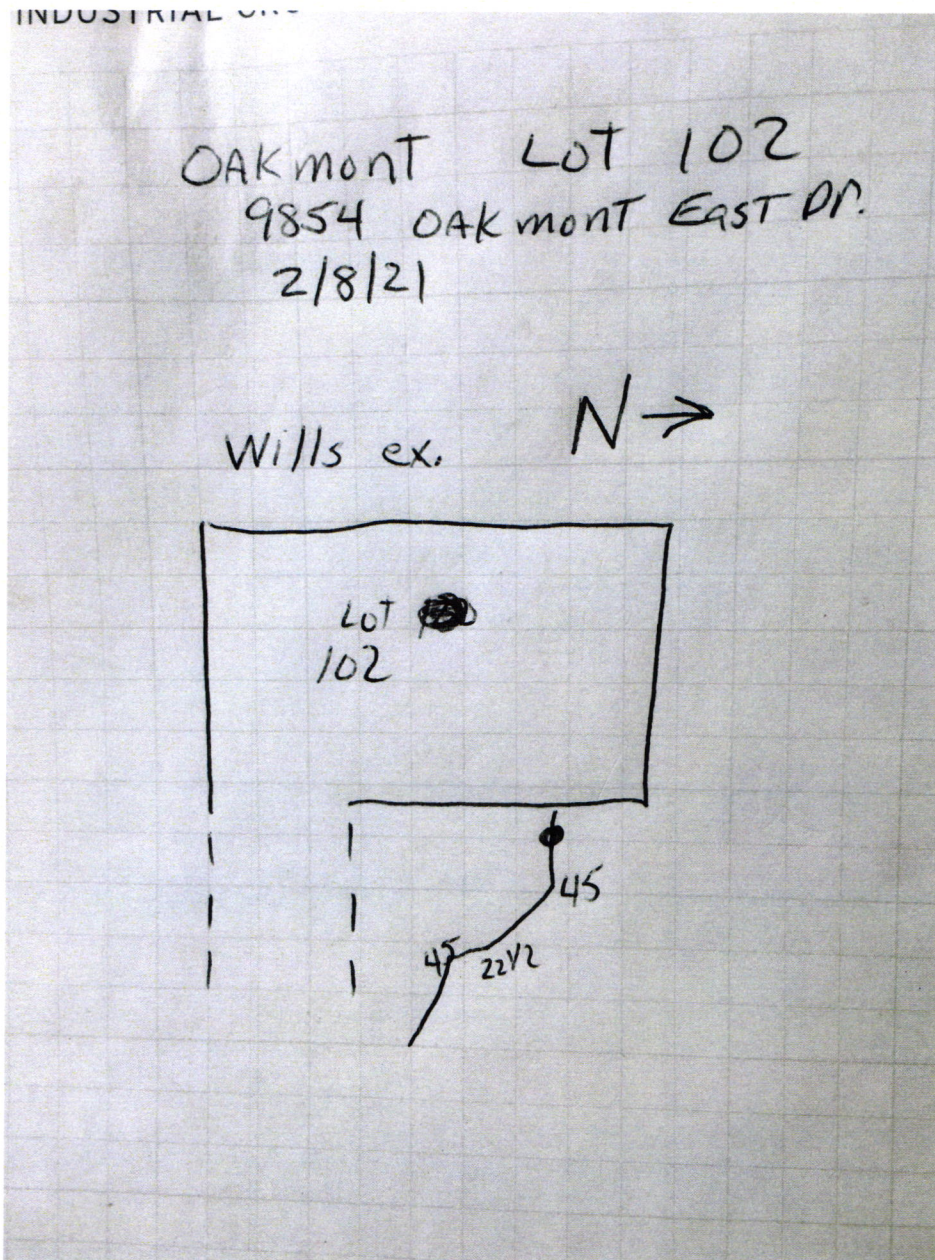 INDUSTRIAL
OAKmonT LoT 102
9854 OAKmonT EasT Dr.
2/8/21
N
Wills ex.
LoT
102
45
45
22 1/2